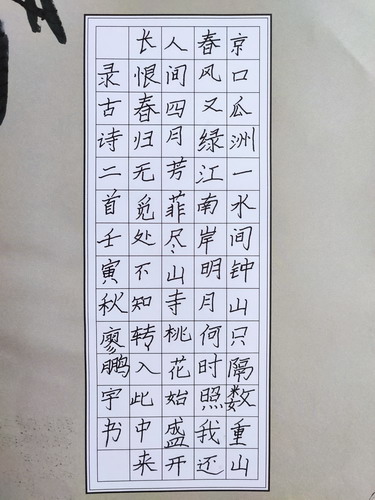 京口瓜洲一水间钟山只隔数重山
春风又绿江南岸明月何时照我还
人间四月芳菲尽山寺桃花始盛开
长恨春归无觅处不知转入此中来
录古诗二首壬寅秋廖鹏宇书